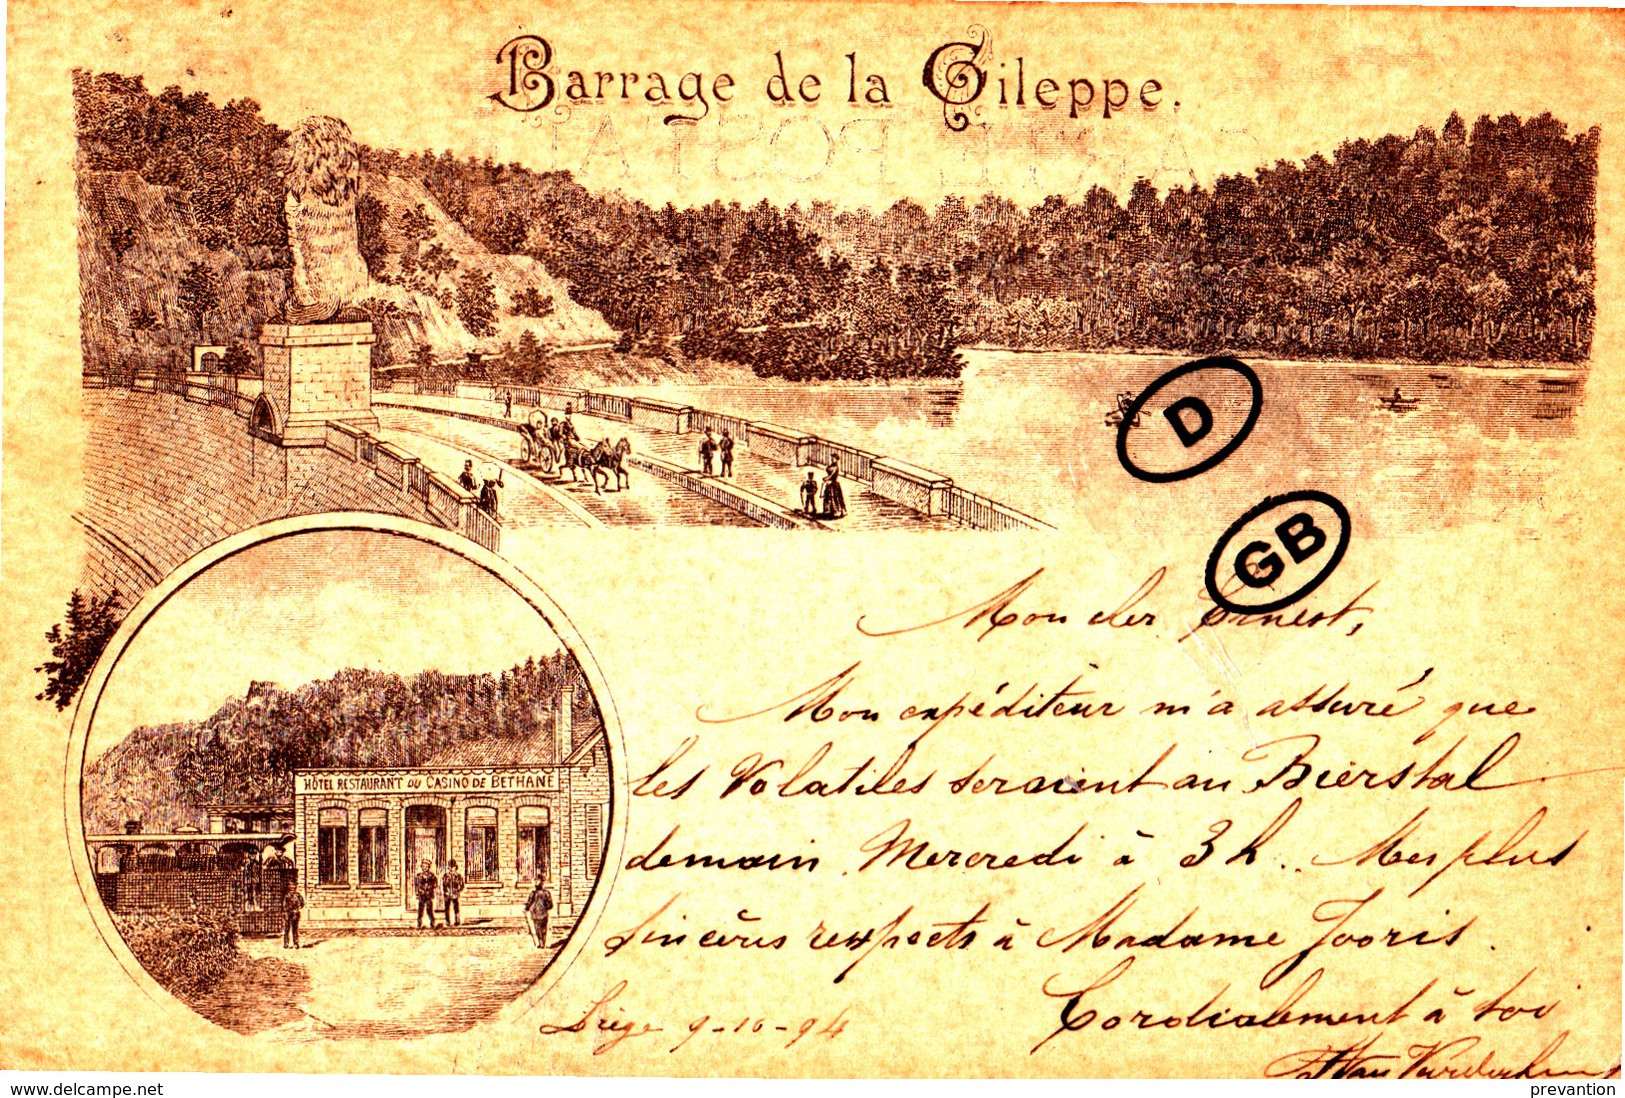 Barrage de la Gileppe.
CARTE POSTALE
D
GB
HÔTEL RESTAURANT DU CASINO DE BETHANE
Mon cher Ernest,
Mon expéditeur m'a assuré que
les Volatiles seraient au Bierstal
demain Mercredi à 3 h. Mes plus
sincères respects à Madame Jooris.
Cordialement à toi
Liège 9-10-94
Van
www.delcampe.net
prevantion